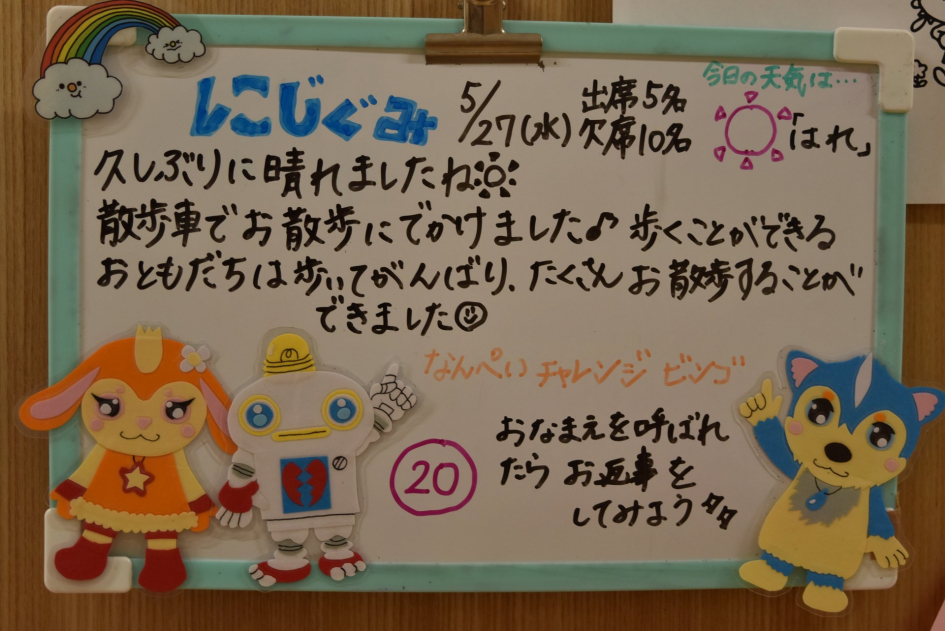 にじぐみ
5/27(水)
出席5名
欠席10名
今日の天気は…
「はれ」
久しぶりに晴れましたね
散歩車でお散歩にでかけました♪歩くことができる
おともだちは歩いてがんばり、たくさんお散歩することが
できました
なんぺいチャレンジビンゴ
20
おなまえを呼ばれ
たらお返事を
してみよう